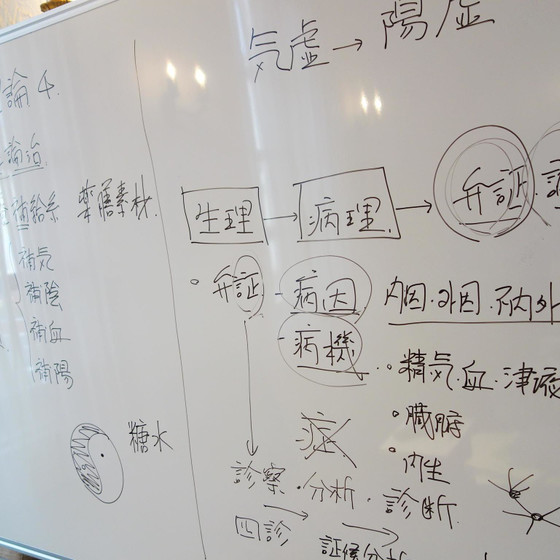 気虚→陽虚
論 4.
論治
補給系 薬膳素材.
補気
補陰
補血
補陽
糖水
生理→病理→弁証
・弁証 - 病因 内因・外因・不内外
- 病機 ・精気・血・津液
・臓腑
・内生
症
診察・分析・診断
四診 証候分析